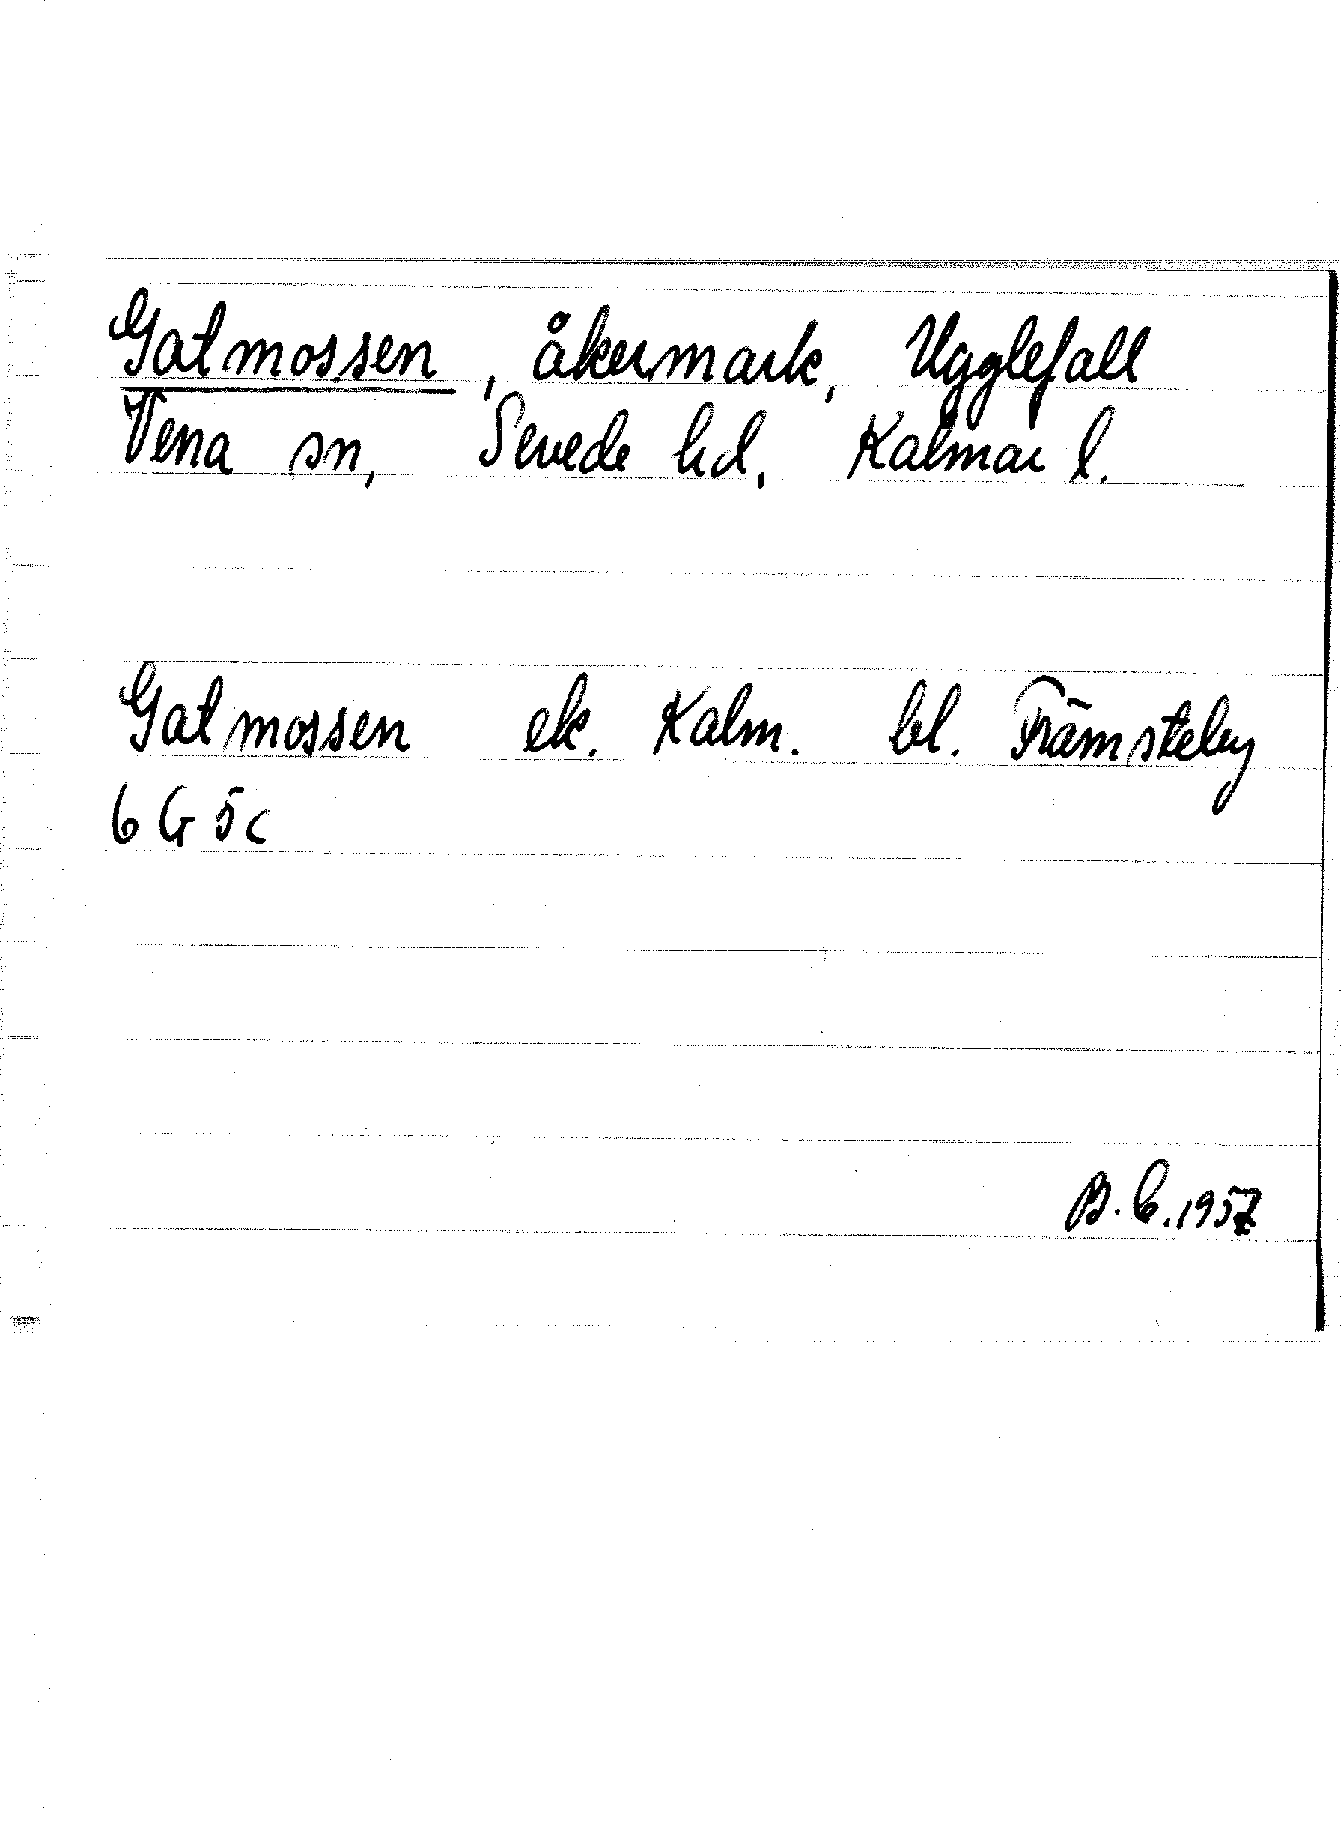 Gatmossen, åkermark, Ugglefall
Vena sn, Sevede hd, Kalmar l.
Gatmossen ek. Kalm. bl. Främsteby
6 G 5c
B.C.1957